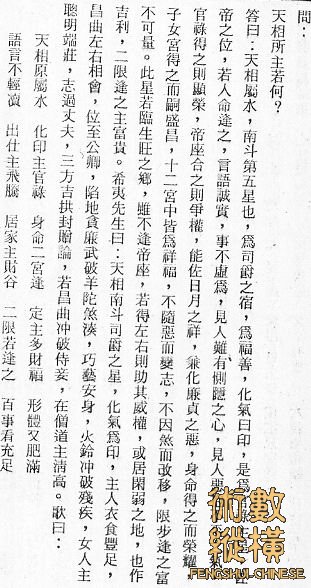 問：
天相所主若何？
答曰：天相屬水，南斗第五星也，爲司爵之宿，爲福善，化氣曰印，是爲
帝之位，若人命逢之，言語誠實，事不虛爲，見人難有惻隱之心，見人惡 氣
官祿得之則顯榮，帝座合之則爭權，能佐日月之祥，兼化廉貞之惡，身命得之而榮耀
子女宮得之而嗣盛昌，十二宮中皆爲祥福，不隨惡而變志，不因煞而改移，限步逢之富
不可量。此星若臨生旺之鄉，雖不逢帝座，若得左右則助其威權，或居閑弱之地，也作
吉利，二限逢之主富貴。希夷先生曰：天相南斗司爵之星，化氣爲印，主人衣食豐足，
昌曲左右相會，位至公卿，陷地貪廉武破羊陀煞湊，巧藝安身，火鈴冲破殘疾，女人主
聰明端莊，志過丈夫，三方吉拱封贈論，若昌曲冲破侍妾，在僧道主清高。歌曰：
天相原屬水　化印主官祿　身命二宮逢　定主多財福　形體又肥滿
語言不輕瀆　出仕主飛騰　居家主財谷　二限若逢之　百事看充足
術數
縱橫
FENGSHUI-CHINESE